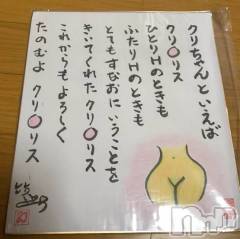 クリちゃんといえば
クリ○リス
ひとりHのときも
ふたりHのときも
とてもすなおにいうことを
きいてくれたクリ○リス
これからもよろしく
たのむよ クリ○リス